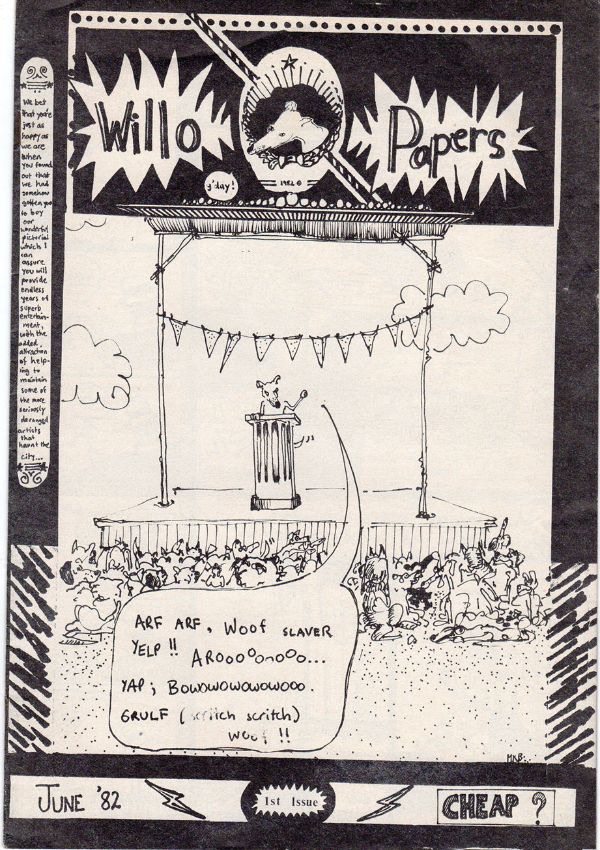 Willo
Papers
1982 ©
g'day!
We bet
that you're
just as
happy as
we are
when
you found
out that
we had
somehow
gotten you
to boy
our
wonderful
pictorial
which I
can
assure
you will
provide
endless
years of
superb
entertain-
ment,
with the
added
attraction
of help-
ing to
maintain
some of
the more
seriously
deranged
artists
that
haunt the
city...
ARF ARF, Woof SLAVER
YELP !! AROooOonoOo...
YAP; BOWOWOWOWOWOOO.
GRULF (scritch scritch)
woof !!
MKB.
JUNE '82
1st Issue
CHEAP ?